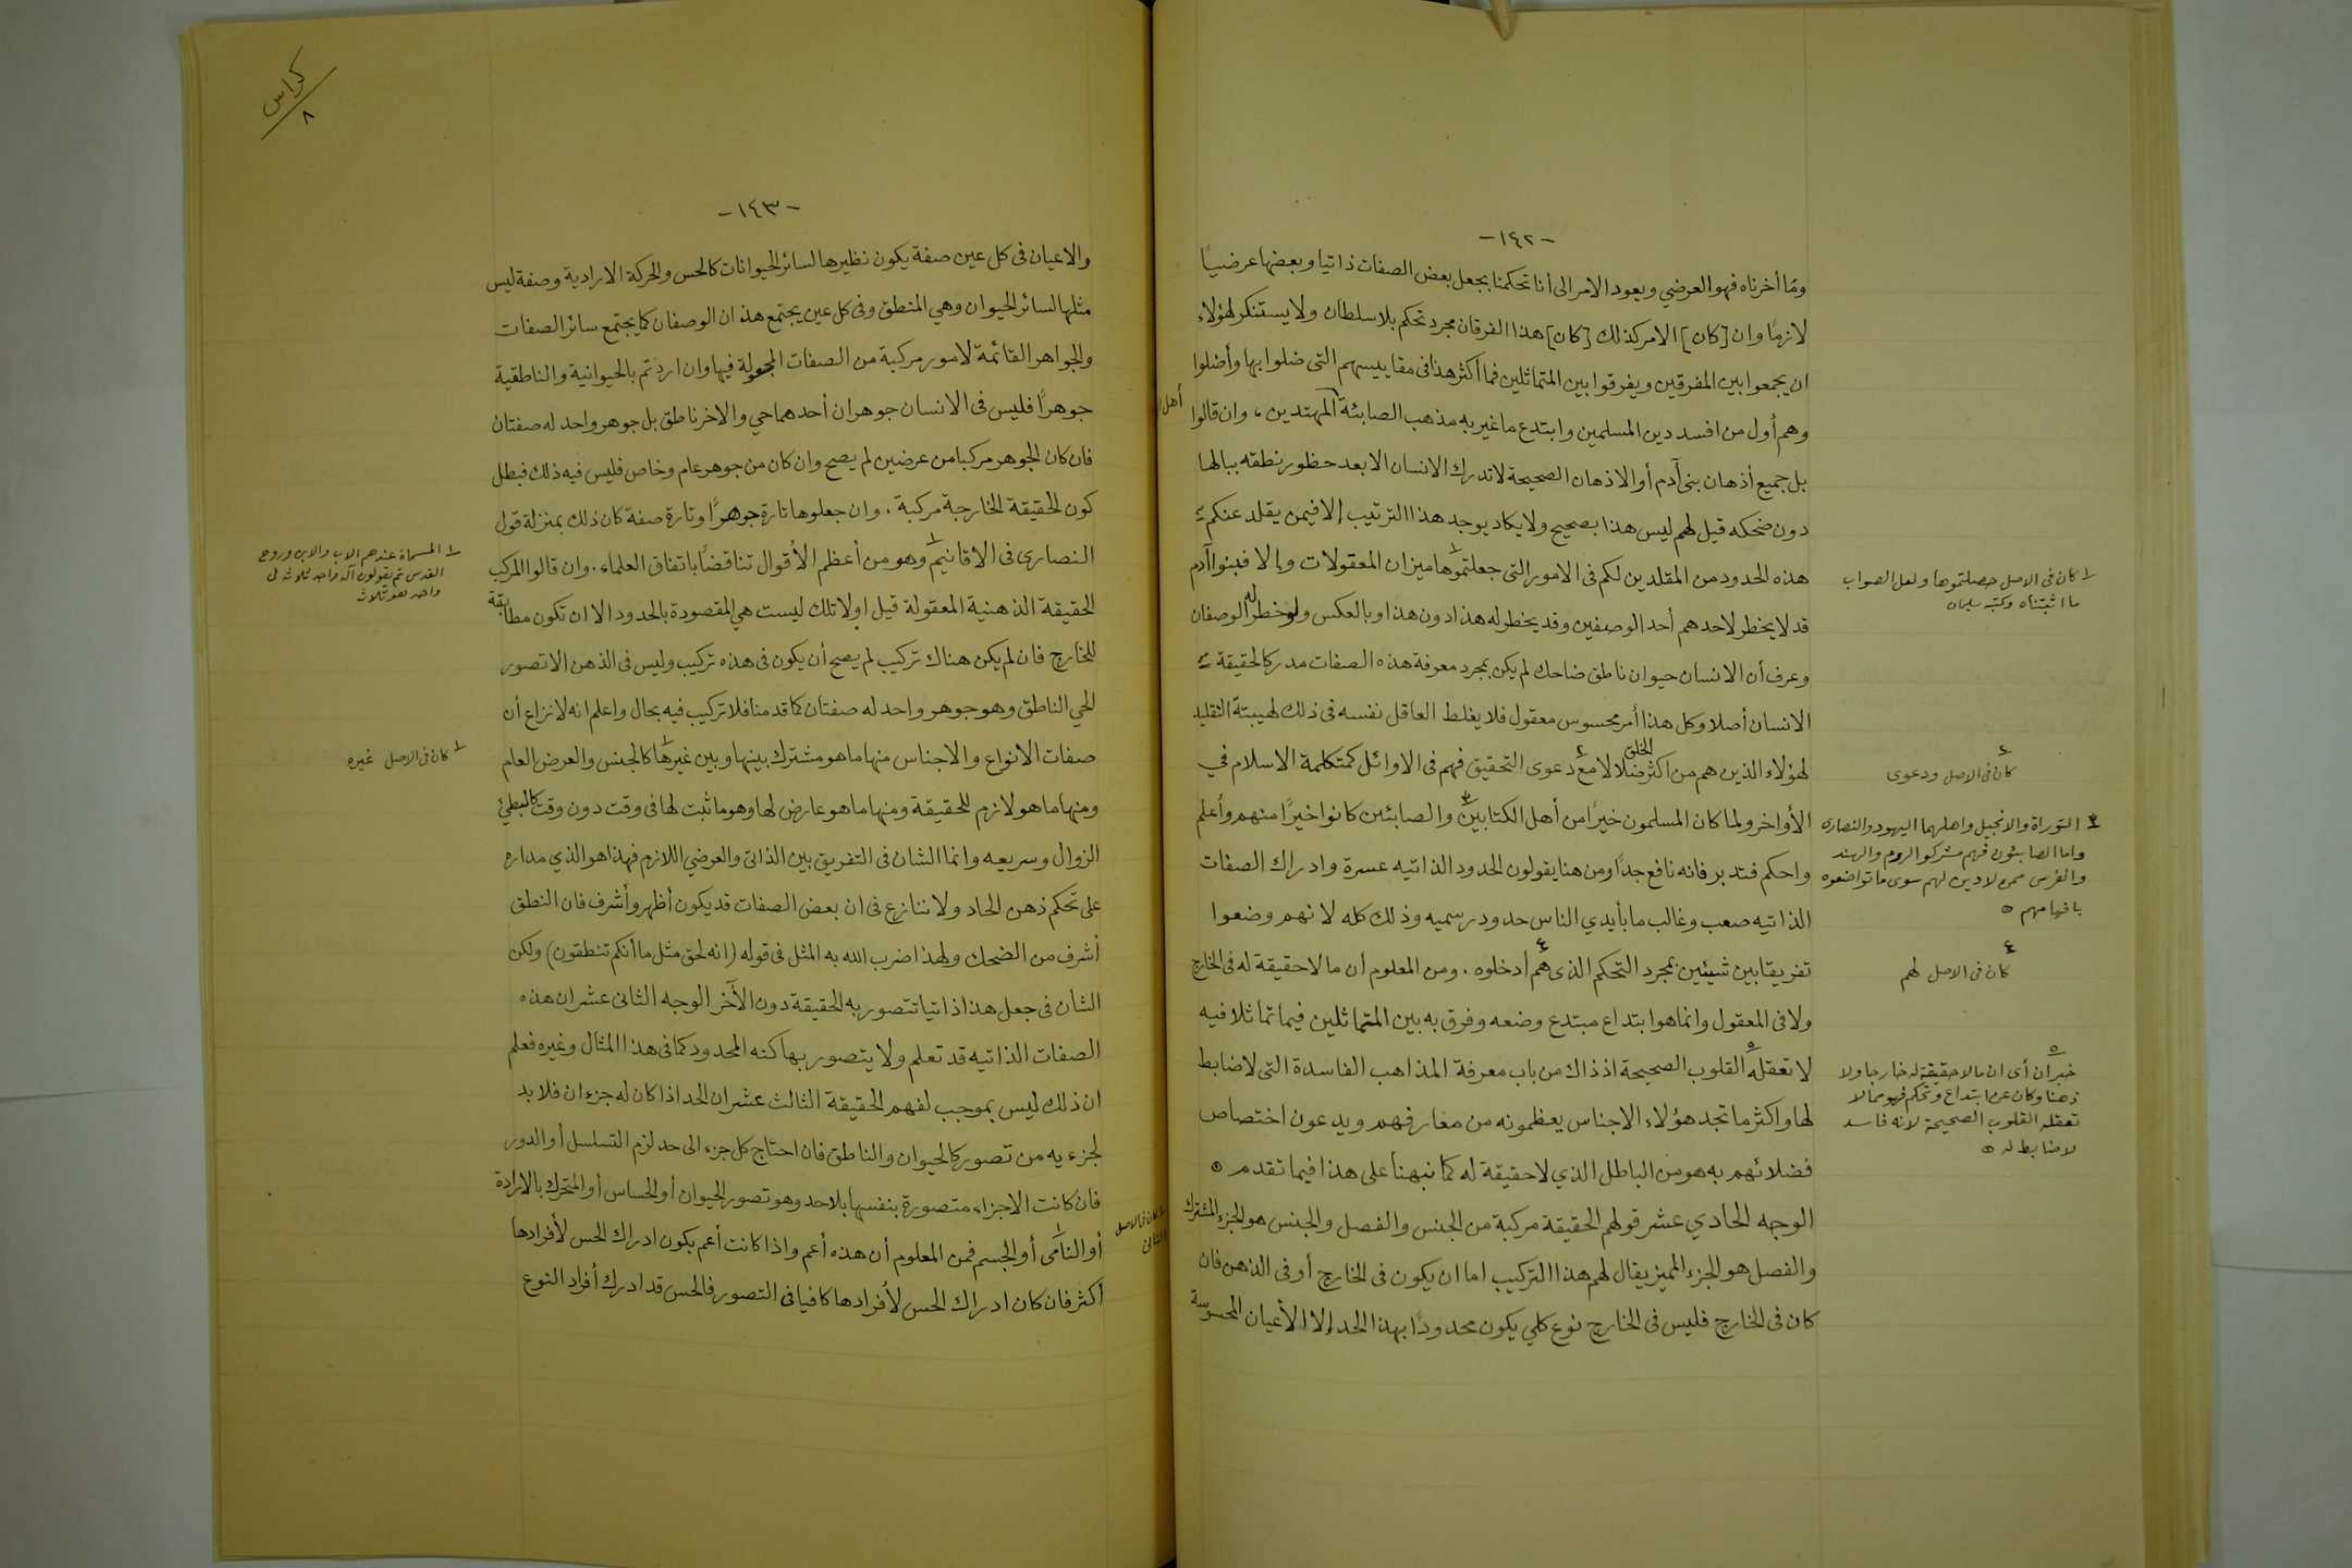 -١٤٢-
وما أخرناه فهو العرضي ويعود الامر الى أنا تحكمنا بجعل بعض الصفات ذاتيا وبعضها عرضيا
لازما وان [كان] الامر كذلك [كان] هذا الفرقان مجرد تحكم بلا سلطان ولا يستنكر لهؤلاء
ان يجمعوا بين المفرقين ويفرقوا بين المتماثلين فما أكثر هذا فى مقاييسهم التى ضلوا بها وأضلوا
أهل
وهم أول من افسد دين المسلمين وابتدع ما غير به مذهب الصابئة المهتدين، وان قالوا
بل جميع أذهان بنى آدم أو الاذهان الصحيحة لا تدرك الانسان الا بعد خطور نطقه ببالها
دون ضحكه قيل لهم ليس هذا بصحيح ولا يكاد يوجد هذا الترتيب إلا فيمن يقلد عنكم
هذه الحدود من المقلدين لكم فى الامور التى جعلتموها ميزان المعقولات وإلا فبنوا آدم
قد لا يخطر لاحدهم أحد الوصفين وقد يخطر له هذا دون هذا وبالعكس ولو خطر له الوصفان
وعرف أن الانسان حيوان ناطق ضاحك لم يكن بمجرد معرفة هذه الصفات مدركا لحقيقة
الانسان أصلا وكل هذا أمر محسوس معقول فلا يغلط العاقل نفسه فى ذلك لهيبة التقليد
لهؤلاء الذين هم من اكثر الخلق ضلالا مع دعوى التحقيق فهم فى الاوائل كمتكلمة الاسلام في
الأواخر ولما كان المسلمون خيرا من أهل الكتابين والصابئين كانوا خيرا منهم وأعلم
واحكم فتدبر فانه نافع جدا ومن هنا يقولون الحدود الذاتيه عسرة وادراك الصفات
الذاتيه صعب وغالب ما بأيدي الناس حدود رسميه وذلك كله لانهم وضعوا
تفريقا بين شيئين بمجرد التحكم الذى هم أدخلوه. ومن المعلوم أن ما لا حقيقة له فى الخارج
ولا فى المعقول وانما هو ابتداع مبتدع وضعه وفرق به بين المتماثلين فيما تماثلا فيه
لا تعقله القلوب الصحيحة اذ ذاك من باب معرفة المذاهب الفاسدة التى لا ضابط
لها واكثر ما تجد هؤلاء الاجناس يعظمونه من معارفهم ويدعون اختصاص
فضلائهم به هو من الباطل الذي لا حقيقة له كما نبهنا على هذا فيما تقدم ٥
الوجه الحادي عشر قولهم الحقيقة مركبة من الجنس والفصل والجنس هو الجزء المشترك
والفصل هو الجزء المميز يقال لهم هذا التركيب اما ان يكون فى الخارج أو فى الذهن فان
كان فى الخارج فليس فى الخارج نوع كلي يكون محدودا بهذا الحد إلا الأعيان المحسوسة
١ كان فى الاصل حصلتموها ولعل الصواب
ما اثبتناه وكتبه سليمان
٤ كان فى الاصل ودعوى
٣ التوراة والانجيل واهلهما اليهود والنصارى
واما الصابئون فهم مشركو الروم والهند
والفرس ممن لا دين لهم سوى ما تواضعوه
بافهامهم ٥
٤ كان فى الاصل لهم
٥ خبر ان أى ان ما لا حقيقة له خارجا ولا
ذهنا وكان عن ابتداع وتحكم فهو مما لا
تعقله القلوب الصحيحة لانه فاسد
لا ضابط له ٥
كراس
٨
-١٤٣-
والاعيان فى كل عين صفة يكون نظيرها لسائر الحيوانات كالحس والحركة الارادية وصفة ليس
مثلها لسائر الحيوان وهي المنطق وفى كل عين يجتمع هذان الوصفان كما يجتمع سائر الصفات
والجواهر القائمة لامور مركبة من الصفات المجعولة فيها وان اردتم بالحيوانية والناطقية
جوهرا فليس فى الانسان جوهران أحدهما حي والاخر ناطق بل جوهر واحد له صفتان
فان كان الجوهر مركبا من عرضين لم يصح وان كان من جوهر عام وخاص فليس فيه ذلك فبطل
كون الحقيقة الخارجة مركبة. وان جعلوها تارة جوهرا وتارة صفة كان ذلك بمنزلة قول
النصارى فى الاقانيم وهو من أعظم الأقوال تناقضا باتفاق العلماء. وان قالوا المركب
الحقيقة الذهنية المعقولة قيل اولا تلك ليست هي المقصودة بالحدود الا ان تكون مطابقة
للخارج فان لم يكن هناك تركيب لم يصح أن يكون فى هذه تركيب وليس فى الذهن الا تصور
الحي الناطق وهو جوهر واحد له صفتان كما قدمنا فلا تركيب فيه بحال واعلم انه لا نزاع أن
صفات الانواع والاجناس منها ما هو مشترك بينها وبين غيرها كالجنس والعرض العام
ومنها ما هو لازم للحقيقة ومنها ما هو عارض لها وهو ما ثبت لها فى وقت دون وقت كالبطئ
الزوال وسريعه وانما الشان فى التفريق بين الذاتى والعرضي اللازم فهذا هو الذي مداره
على تحكم ذهن الحاد ولا ننازع فى ان بعض الصفات قد يكون أظهر وأشرف فان النطق
أشرف من الضحك ولهذا ضرب الله به المثل فى قوله (انه لحق مثل ما أنكم تنطقون) ولكن
الشأن فى جعل هذا ذاتيا تتصور به الحقيقة دون الآخر الوجه الثانى عشر ان هذه
الصفات الذاتيه قد تعلم ولا يتصور بها كنه المحدود كما فى هذا المثال وغيره فعلم
ان ذلك ليس بموجب لفهم الحقيقة الثالث عشر ان الحد اذا كان له جزءان فلا بد
لجزءيه من تصور كالحيوان والناطق فان احتاج كل جزء الى حد لزم التسلسل أو الدور
فان كانت الاجزاء متصورة بنفسها بلا حد وهو تصور الحيوان أو الحساس أو المتحرك بالارادة
أو النامى أو الجسم فمن المعلوم أن هذه أعم واذا كانت أعم يكون ادراك الحس لأفرادها
أكثر فان كان ادراك الحس لأفرادها كافيا فى التصور فالحس قد ادرك أفراد النوع
١ المسماة عندهم الاب والابن وروح
القدس ثم يقولون آله واحد ثلاثة فى
واحد هو ثلاث
١ كان فى الاصل غيره
١ كان فى الاصل